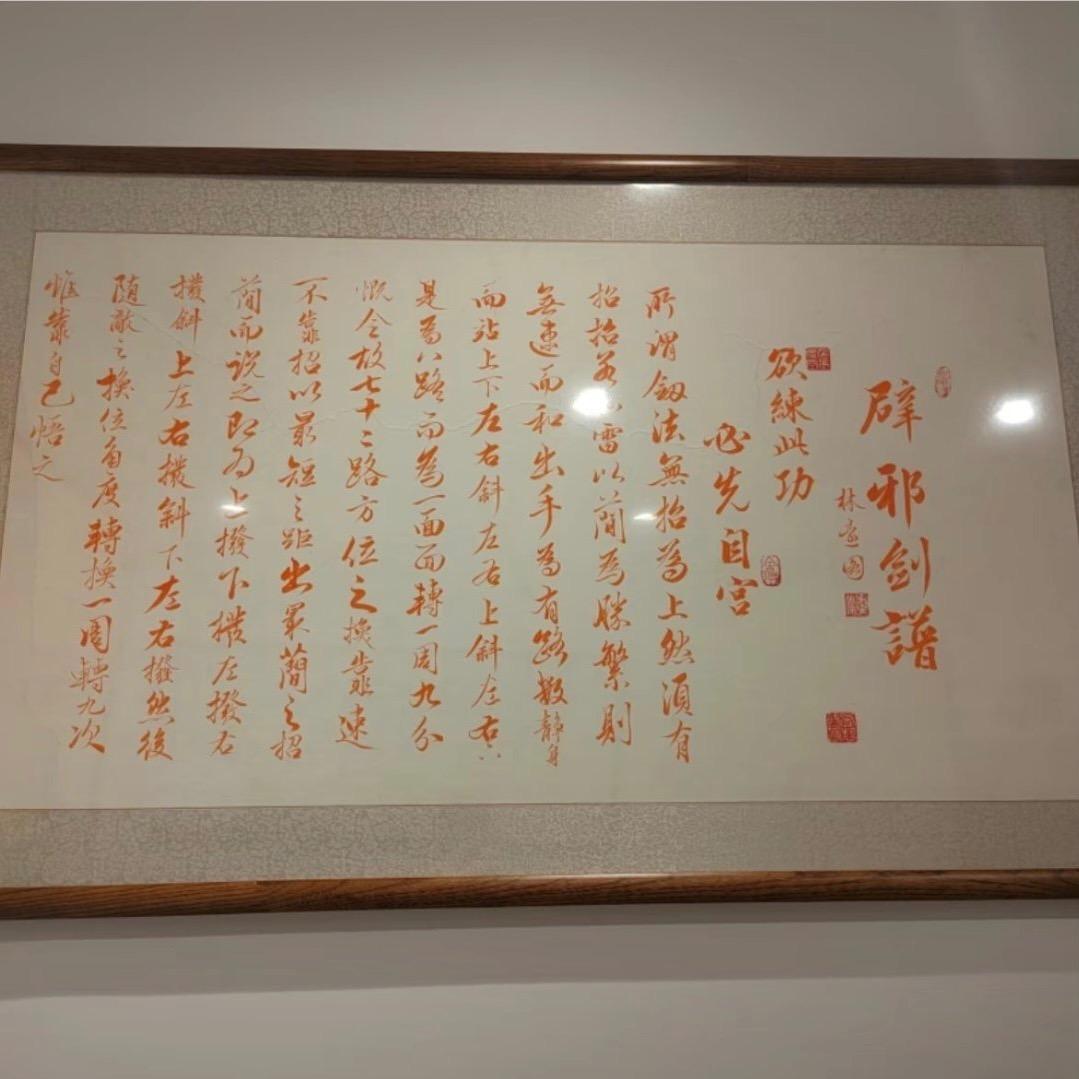 辟邪劍譜
林遠圖
欲練此功
必先自宮
所謂劔法無招為上然須有
招招若雷以簡為勝繁則
無速而和出手為有路数靜身
而站上下左右斜左右上斜左右下
是為八路而為一面面轉一周九分
概念故七十二路方位之換靠速
不靠招以最短之距出最簡之招
簡而说之即为上撥下撥左撥右
撥斜上左右撥斜下左右撥然後
随敵之換位角度轉換一周轉九次
惟靠自己悟之